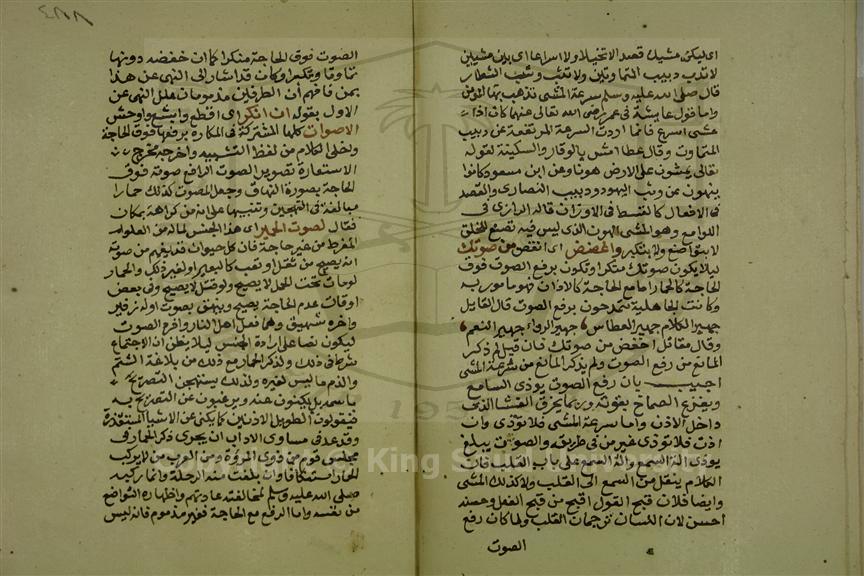 اى ليكن مشيك قصدا لا تخيلا ولا اسراعا اى بين مشيين
لا تدب دبيب المتماوتين ولا تثب وثب الشطار
قال صلى الله عليه وسلم سرعة المشى تذهب بهاء المؤمن
واما قول عايشة فى عمر رضى الله تعالى عنهما كان اذا
مشى اسرع فانما ارادت السرعة المرتفعة عن دبيب
المتماوت وقال عطا امش بالوقار والسكينة لقوله
تعالى يمشون على الارض هونا وعن ابن مسعود كانوا
ينهون عن وثب اليهود ودبيب النصارى والقصد
فى الافعال كالقسط فى الاوزان قاله الرازى فى
اللوامع وهو المشى الهون الذى ليس فيه تصنع للخلق
لا بتواضع ولا بتكبر واغضض اى انقص من صوتك
ليلا يكون صوتك منكرا وتكون برفع الصوت فوق
الحاجة كالحمار اما مع الحاجة كالاذان فهو مامور به
وكانت الجاهلية يتمدحون برفع الصوت قال القايل
جهير الكلام جهير العطاس جهير الرواء جهير النعم
وقال مقاتل اخفض من صوتك فان قيل لم ذكر
المانع من رفع الصوت ولم يذكر المانع من سرعة المشى
اجيب بان رفع الصوت يوذى السامع
ويقرع الصماخ بقوته وربما يخرق الغشا الذى
داخل الاذن واما سرعة المشى فلا توذى وان
اذت فلا توذى غير من فى طريقه والصوت يبلغ
يوذى الة السمع والة السمع على باب القلب فان
الكلام ينتقل من السمع الى القلب ولا كذلك المشى
وايضا فلان قبح القول اقبح من قبح الفعل وحسنه
احسن لان اللسان ترجمان القلب ولما كان رفع
الصوت
الصوت فوق الحاجة منكرا كما ان خفضه دونها
تماوتا وتكبرا وكان قد اشار الى النهى عن هذا
بمن فافهم ان الطرفين مذمومان علل النهى عن
الاول بقوله ان انكر اى افظع وابشع واوحش
الاصوات كلها المشتركة فى المكاره برفعها فوق الحاجة
واخلى الكلام من لفظ التشبيه واخرجه مخرج
الاستعارة تصوير الصوت الرافع صوته فوق
الحاجة بصورة النهاق وجعل المصوت كذلك حمارا
مبالغة فى التهجين وتنبيها على انه من كراهة بمكان
فقال لصوت الحمير اى هذا الجنس لما له من العلو
المفرط من غير حاجة فان كل حيوان قد يفهم من صوته
انه يصيح من ثقل او تعب كالبعير او لغير ذلك والحمار
لو مات تحت الحمل لا يصيح ولو قتل لا يصيح وفى بعض
اوقات عدم الحاجة يصيح وينهق بصوت اوله زفير
واخره شهيق وهما فعل اهل النار وافرد الصوت
ليكون نصا على ارادة الجنس ليلا يظن ان الاجتماع
شرط فى ذلك ولذكر الحمار مع ذلك من بلاغة الشتم
والذم ما ليس لغيره ولذلك يستهجن التصريح
باسمه بل يكنون عنه ويرغبون عن التصريح به
فيقولون الطويل الاذنين كما يكنى عن الاشيا المستقذرة
وقد عد فى مساوى الاداب ان يجرى ذكر الحمار فى
مجلس قوم من ذوى المروة ومن العرب من لا يركب
الحمار استنكافا وان بلغت منه الرحلة وانما ركبه
صلى الله عليه وسلم لمخالفته عادتهم واظهاره التواضع
من نفسه واما الرفع مع الحاجة فغير مذموم فانه ليس